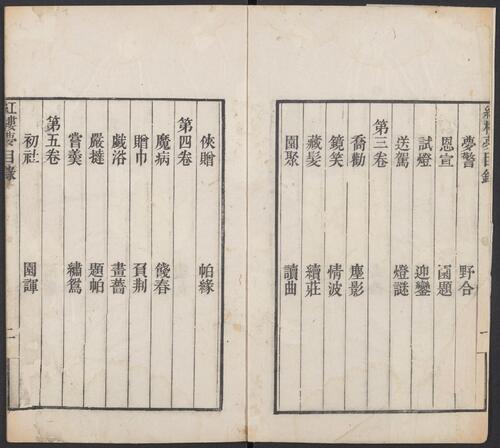 紅樓夢目錄 一
夢警 野合
恩宣 園題
試燈 迎鑾
送駕 燈謎
第三卷
喬勸 塵影
鏡笑 情波
藏髮 續莊
園聚 讀曲
俠贈 帕緣
第四卷
魔病 餞春
贈巾 負荊
戯浴 畫薔
嚴撻 題帕
嘗羹 繡鴛
第五卷
初社 園諢
紅樓夢目錄 二